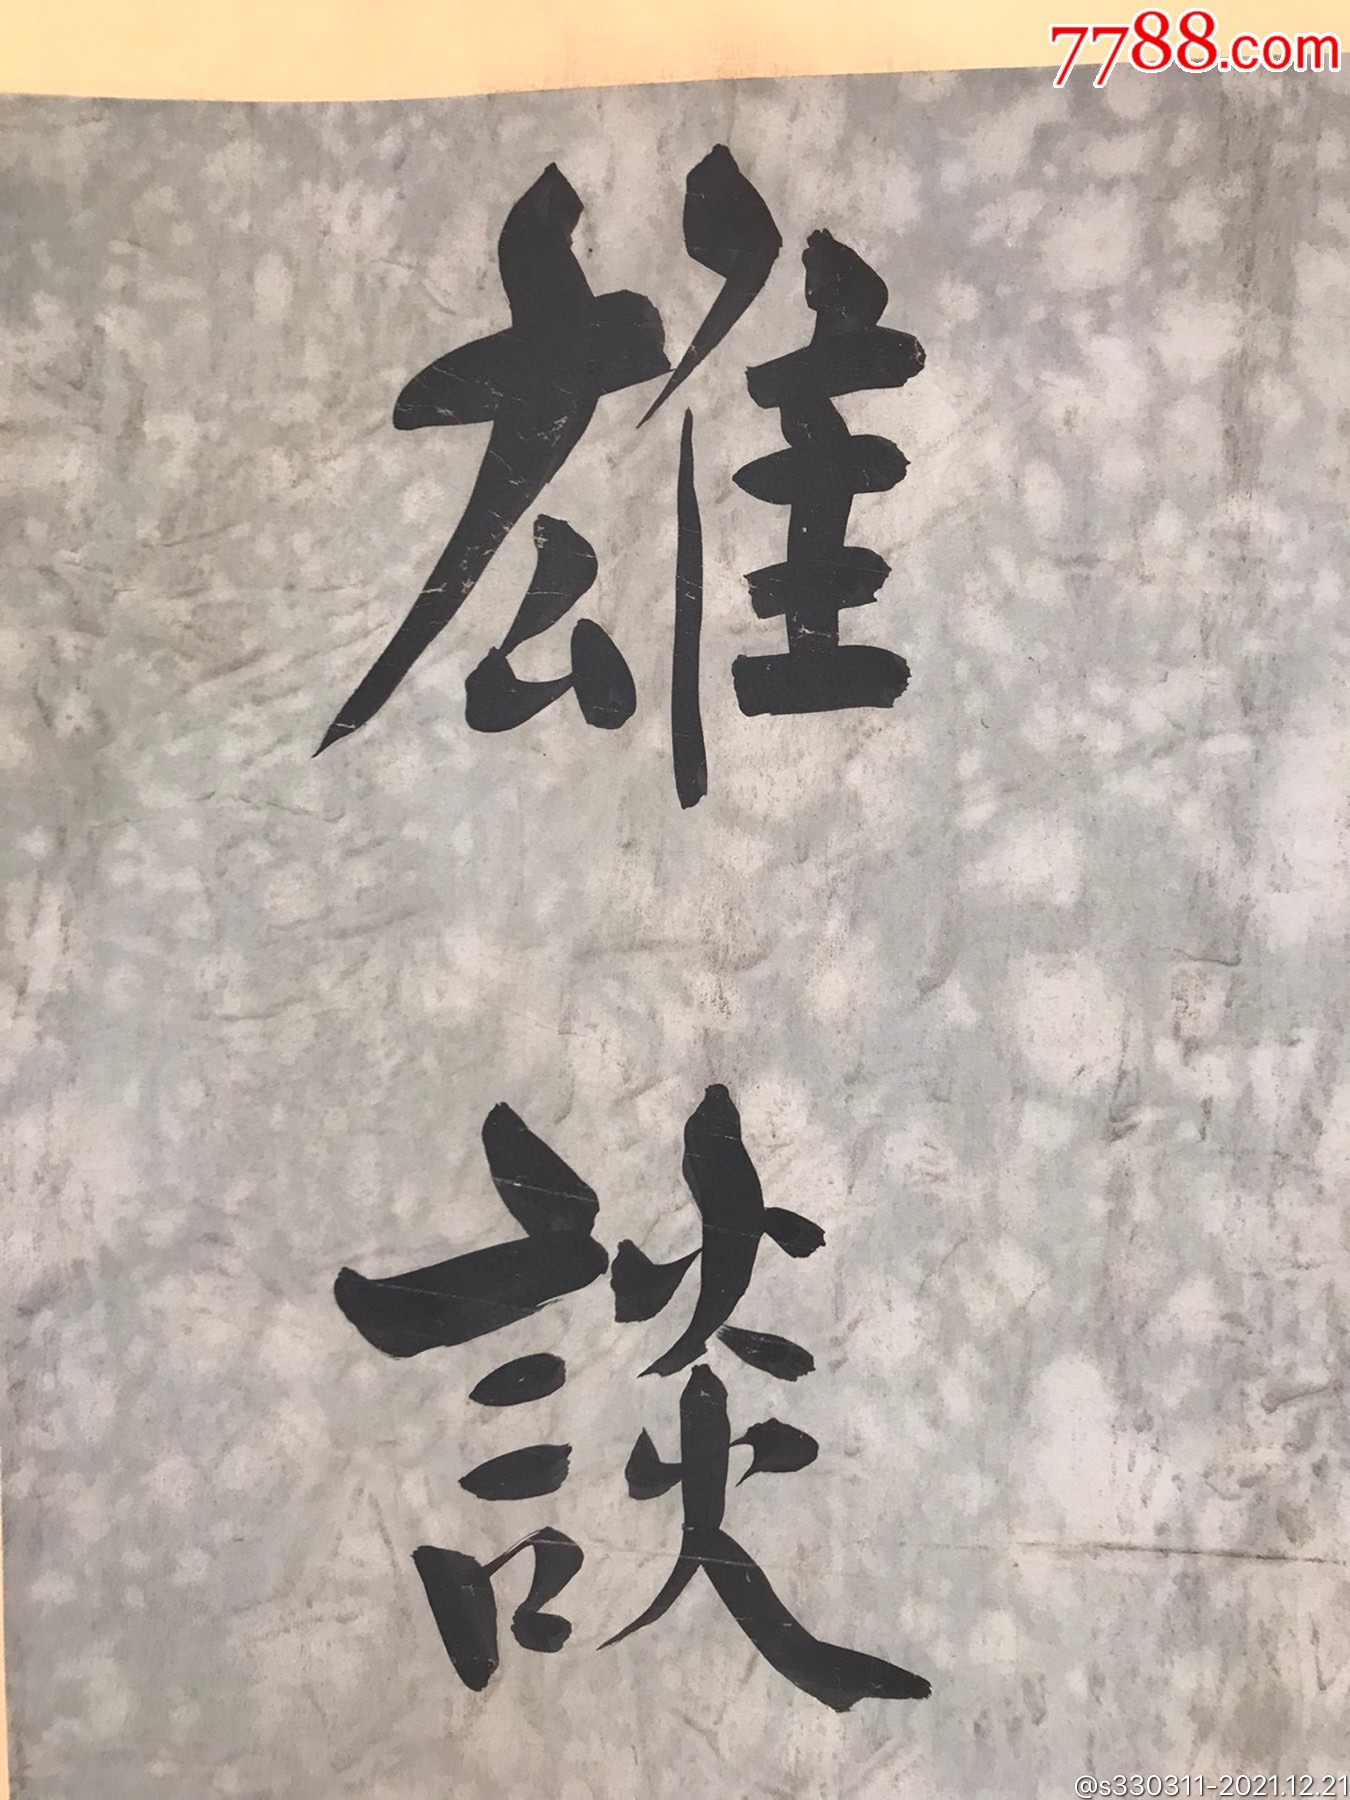 7788.com
雄
談
@s330311-2021.12.21